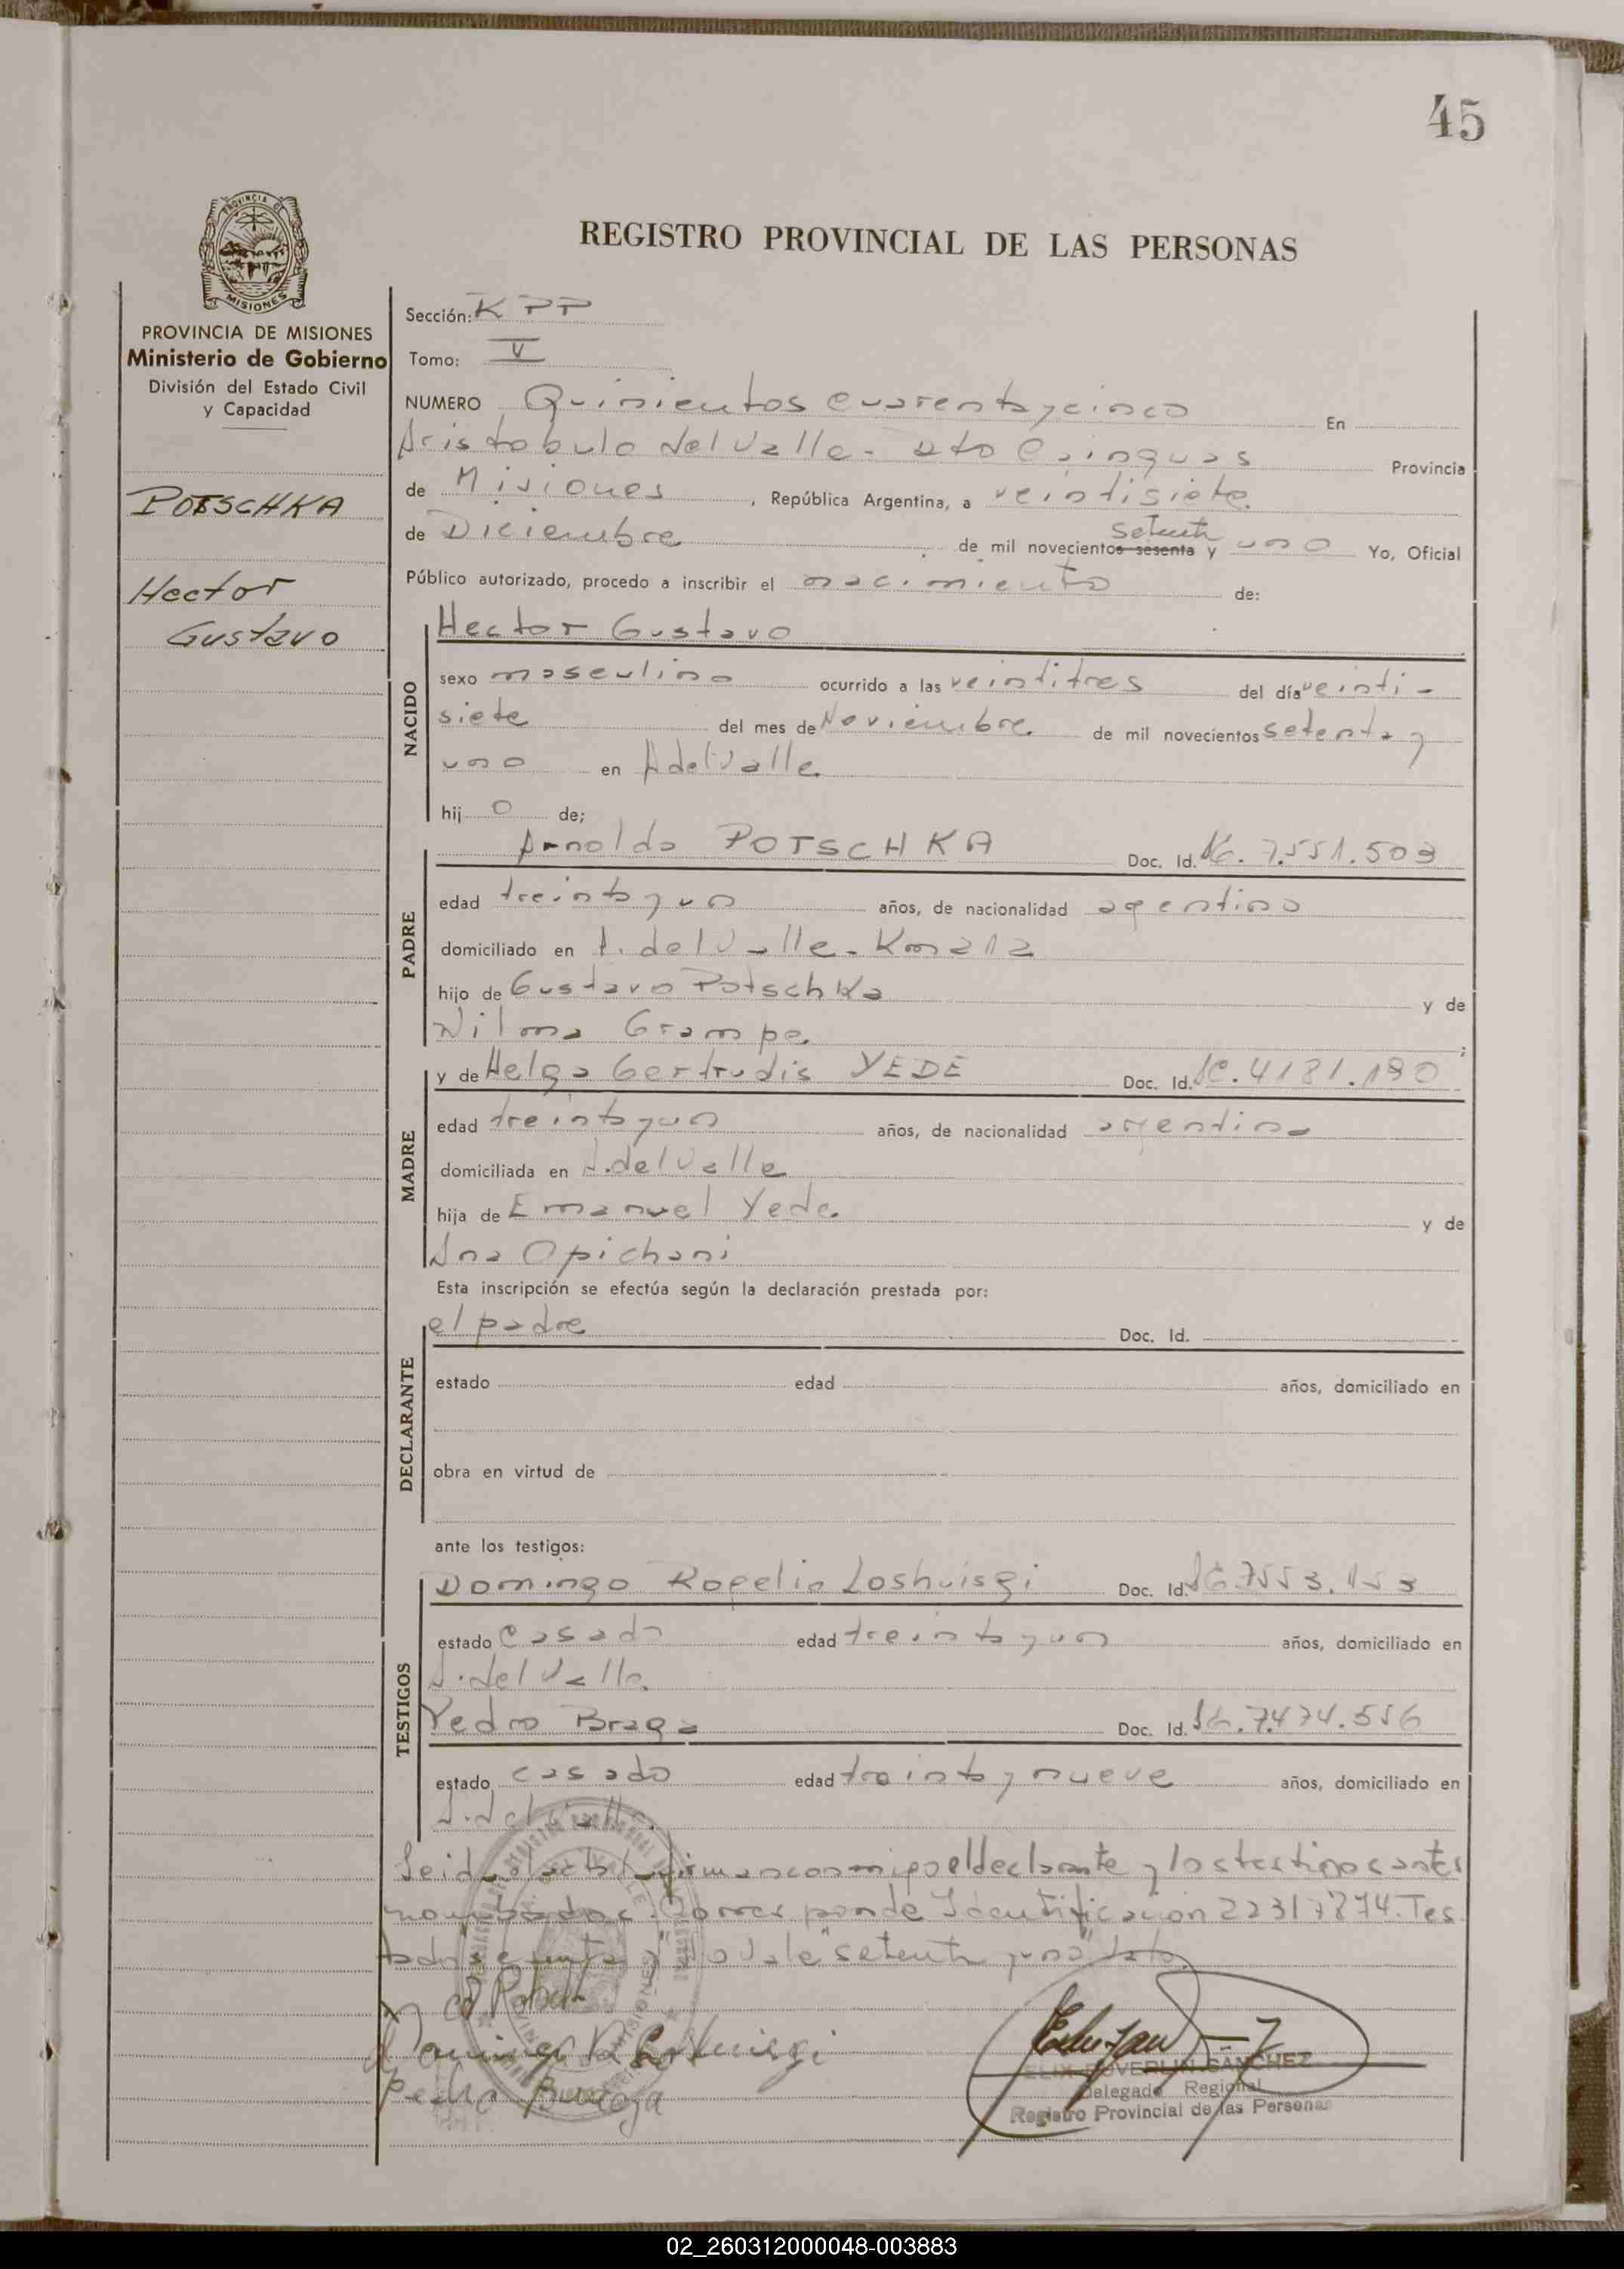 45
PROVINCIA DE
MISIONES
REGISTRO PROVINCIAL DE LAS PERSONAS
PROVINCIA DE MISIONES
Ministerio de Gobierno
División del Estado Civil
y Capacidad
POTSCHKA
Hector
Gustavo
Sección: K PP
Tomo: V
NUMERO Quinientos cuarenta y cinco En
Aristobulo del Valle - Dto Cainguas Provincia
de Misiones, República Argentina, a veintisiete
setenta
de Diciembre de mil novecientos sesenta y uno Yo, Oficial
Público autorizado, procedo a inscribir el nacimiento de:
NACIDO
Hector Gustavo
sexo masculino ocurrido a las veintitres del día veinti-
siete del mes de Noviembre de mil novecientos setenta y
uno en A del Valle
hij o de;
PADRE
Arnoldo POTSCHKA Doc. Id. 7.551.503
edad treinta y un años, de nacionalidad agentino
domiciliado en A. del Valle - Km 212
hijo de Gustavo Potschka y de
Wilma Grampe;
MADRE
y de Helga Gertrudis YEDE Doc. Id. 4181.190
edad treinta y un años, de nacionalidad argentina
domiciliada en A. del Valle
hija de Emanuel Yede y de
Ana Opichani
Esta inscripción se efectúa según la declaración prestada por:
DECLARANTE
el padre Doc. Id.
estado edad años, domiciliado en
obra en virtud de
ante los testigos:
TESTIGOS
Domingo Rogelio Loshuisgi Doc. Id. 7553.153
estado casado edad treinta y un años, domiciliado en
A. del Valle
Pedro Braga Doc. Id. 7.474.556
estado casado edad treinta y nueve años, domiciliado en
A. del Valle.
Leida el acta la firman conmigo el declarante y los testigos antes
nombrados. Corresponde Identificacion 22317874. Tes
tado "sesenta y" no vale "setenta y uno"
Pedro Braga
FELIX DUVERLIN SANCHEZ
Delegado Regional
Registro Provincial de las Personas
02_260312000048-003883